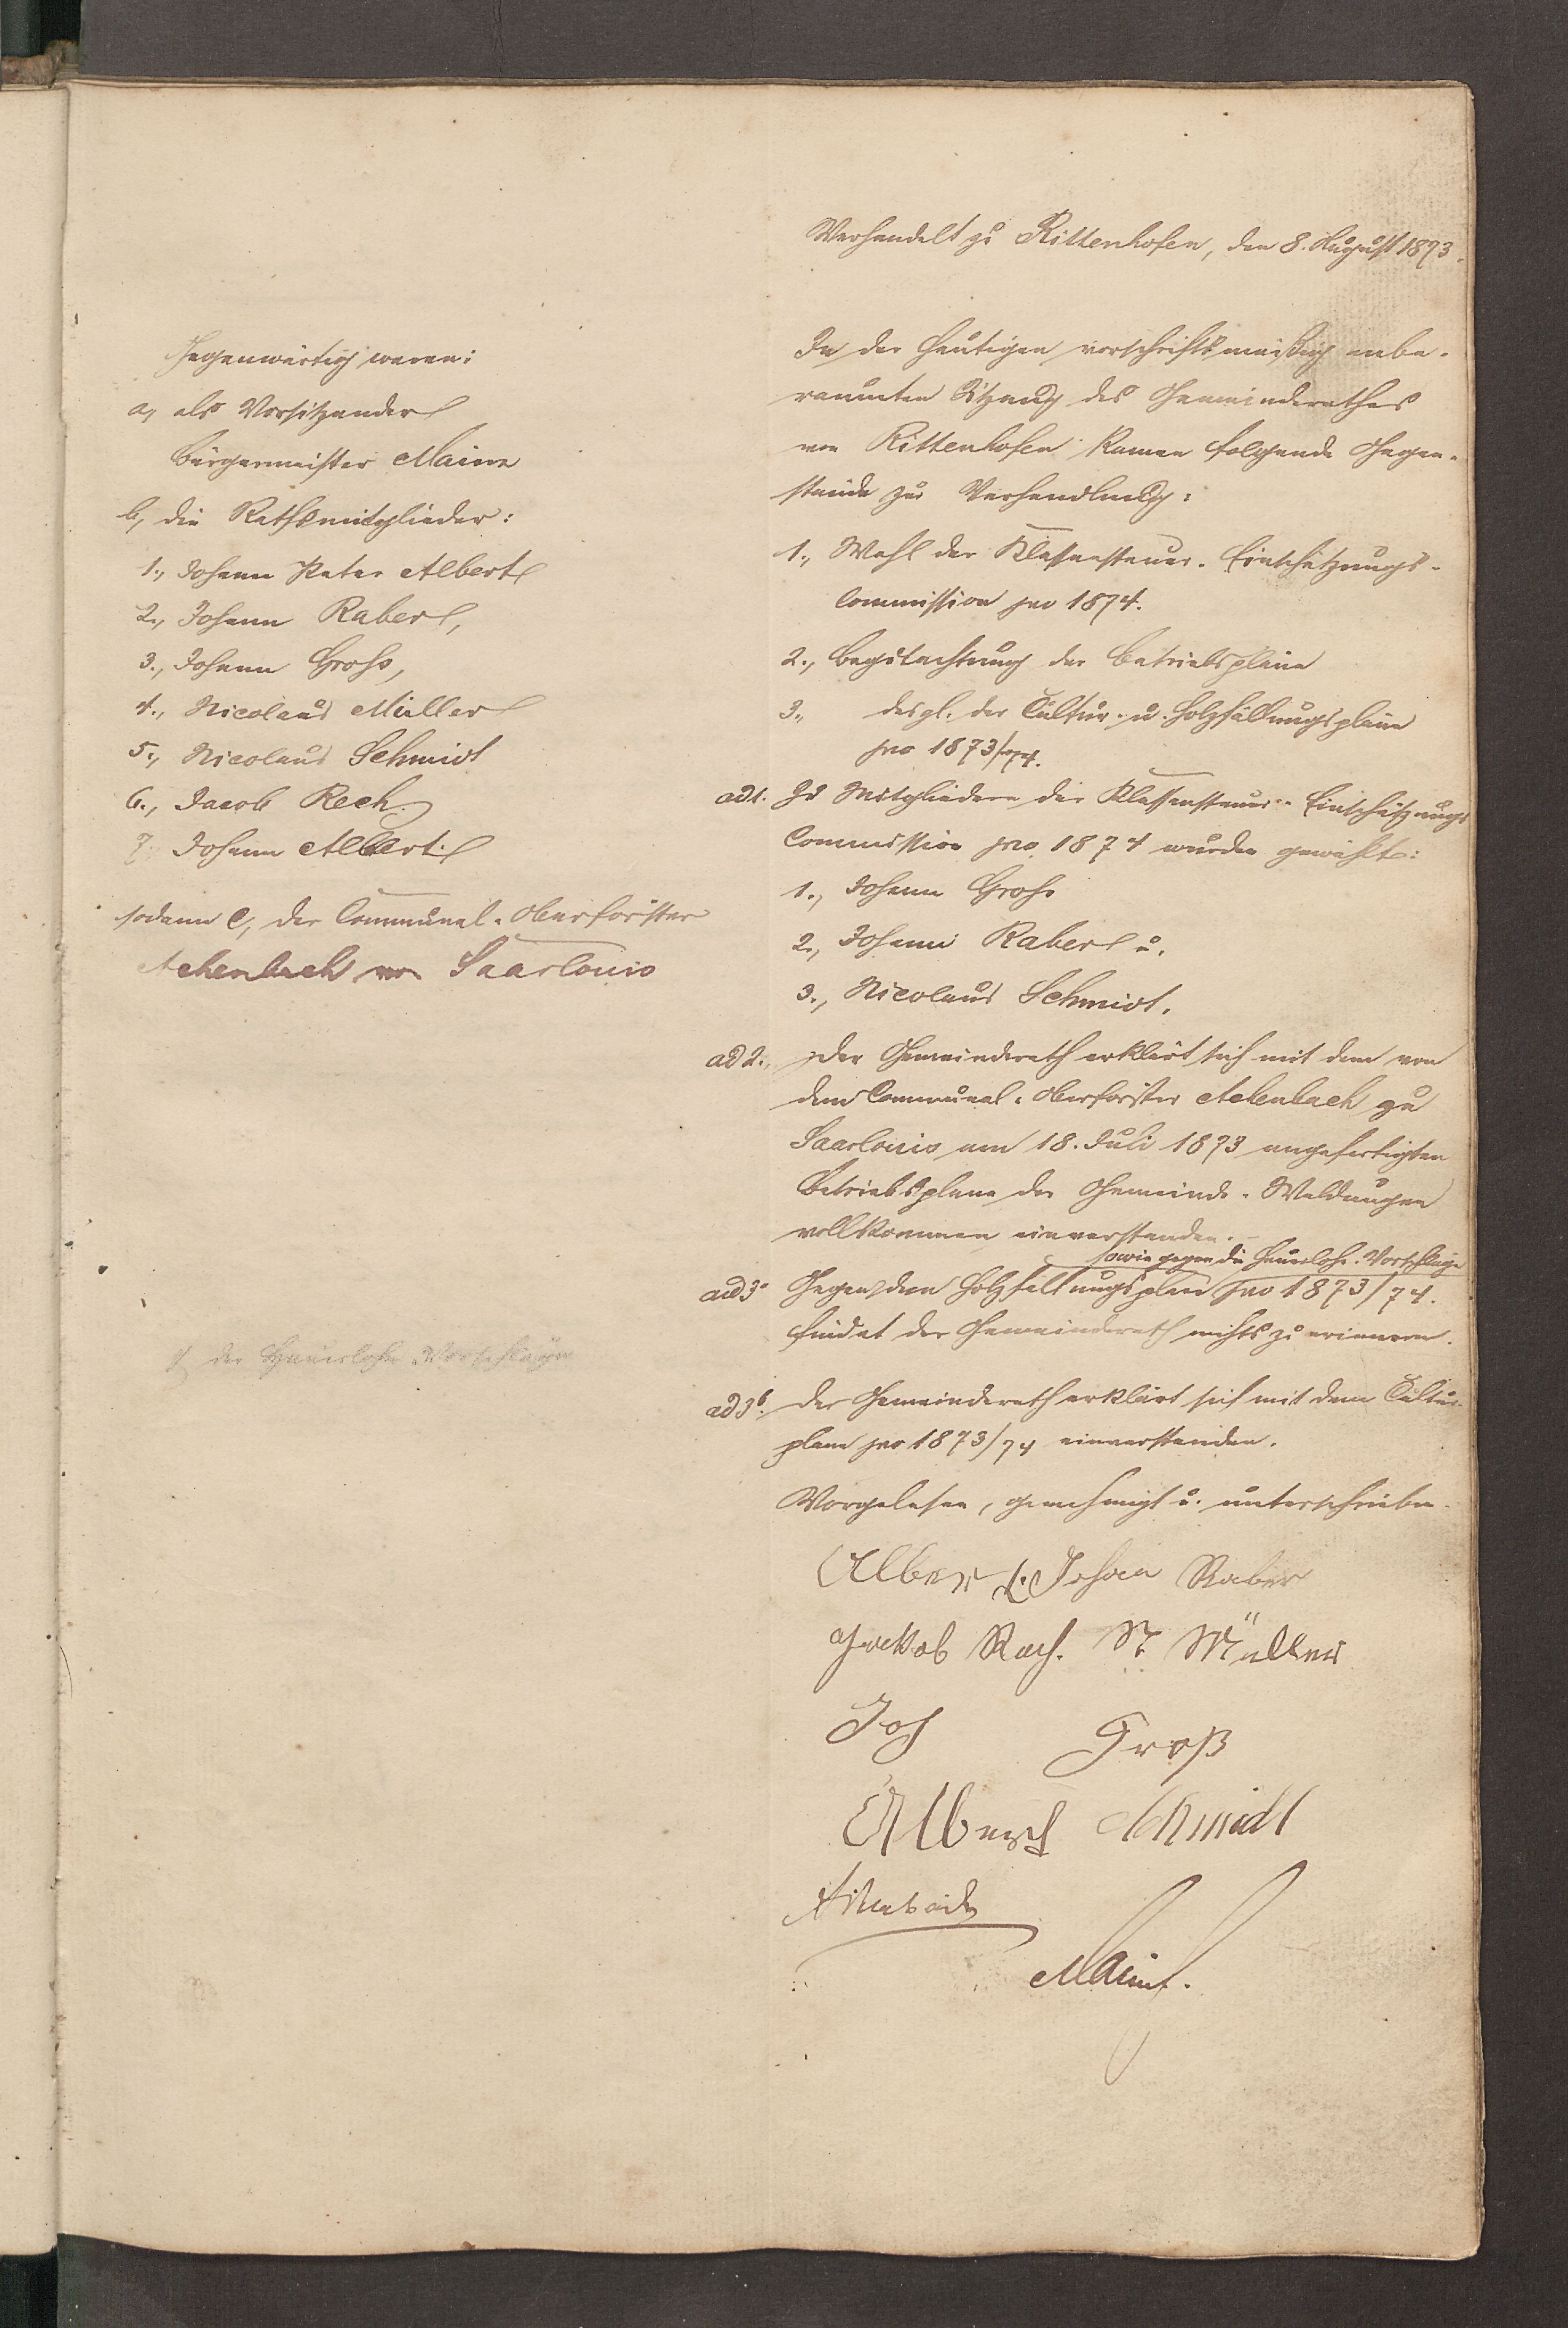 Verhandelt zu Rittenhofen, den 8. August 1873.
Gegenwärtig waren:
a, als Vorsitzender
Bürgermeister Mainz
b, die Rathsmitglieder:
1., Johann Peter Albert
2., Johann Raber,
3., Johann Groß,
4., Nicolaus Müller
5., Nicolaus Schmidt
6., Jacob Rech
7. Johann Albert
sodann c, der Communal-Oberförster
Achenbach von Saarlouis
In der heutigen vorschriftsmäßig anbe-
raumten Sitzung des Gemeinderathes
von Rittenhofen kamen folgende Gegen-
stände zur Verhandlung:
1., Wahl der Klassensteuer-Einschätzungs-
Commission pro 1874.
2., Begutachtung der Betriebspläne
3., desgl. der Cultur- u. Holzfällungspläne
pro 1873/74.
ad 1. Zu Mitgliedern der Klassensteuer-Einschätzungs
Commission pro 1874 wurden gewählt:
1., Johann Groß
2., Johann Raber u.
3., Nicolaus Schmidt.
ad 2., Der Gemeinderath erklärt sich mit dem von
dem Communal-Oberförster Achenbach zu
Saarlouis am 18. Juli 1873 angefertigten
Betriebsplane der Gemeinde-Waldungen
vollkommen einverstanden.
sowie gegen die Hauerlohn-Vorschläge
ad 3a Gegen den Holzfällungsplan pro 1873/74.
findet der Gemeinderath nichts zu erinnern.
der Hauerlohn Vorschläge
ad 3b. Der Gemeinderath erklärt sich mit dem Cultur-
plane pro 1873/74 einverstanden.
Vorgelesen, genehmigt u. unterschrieben.
Albert Johan Raber
Jackob Rech. N Müller
Joh Groß
Albert Schmidt
Achenbach
Mainz.